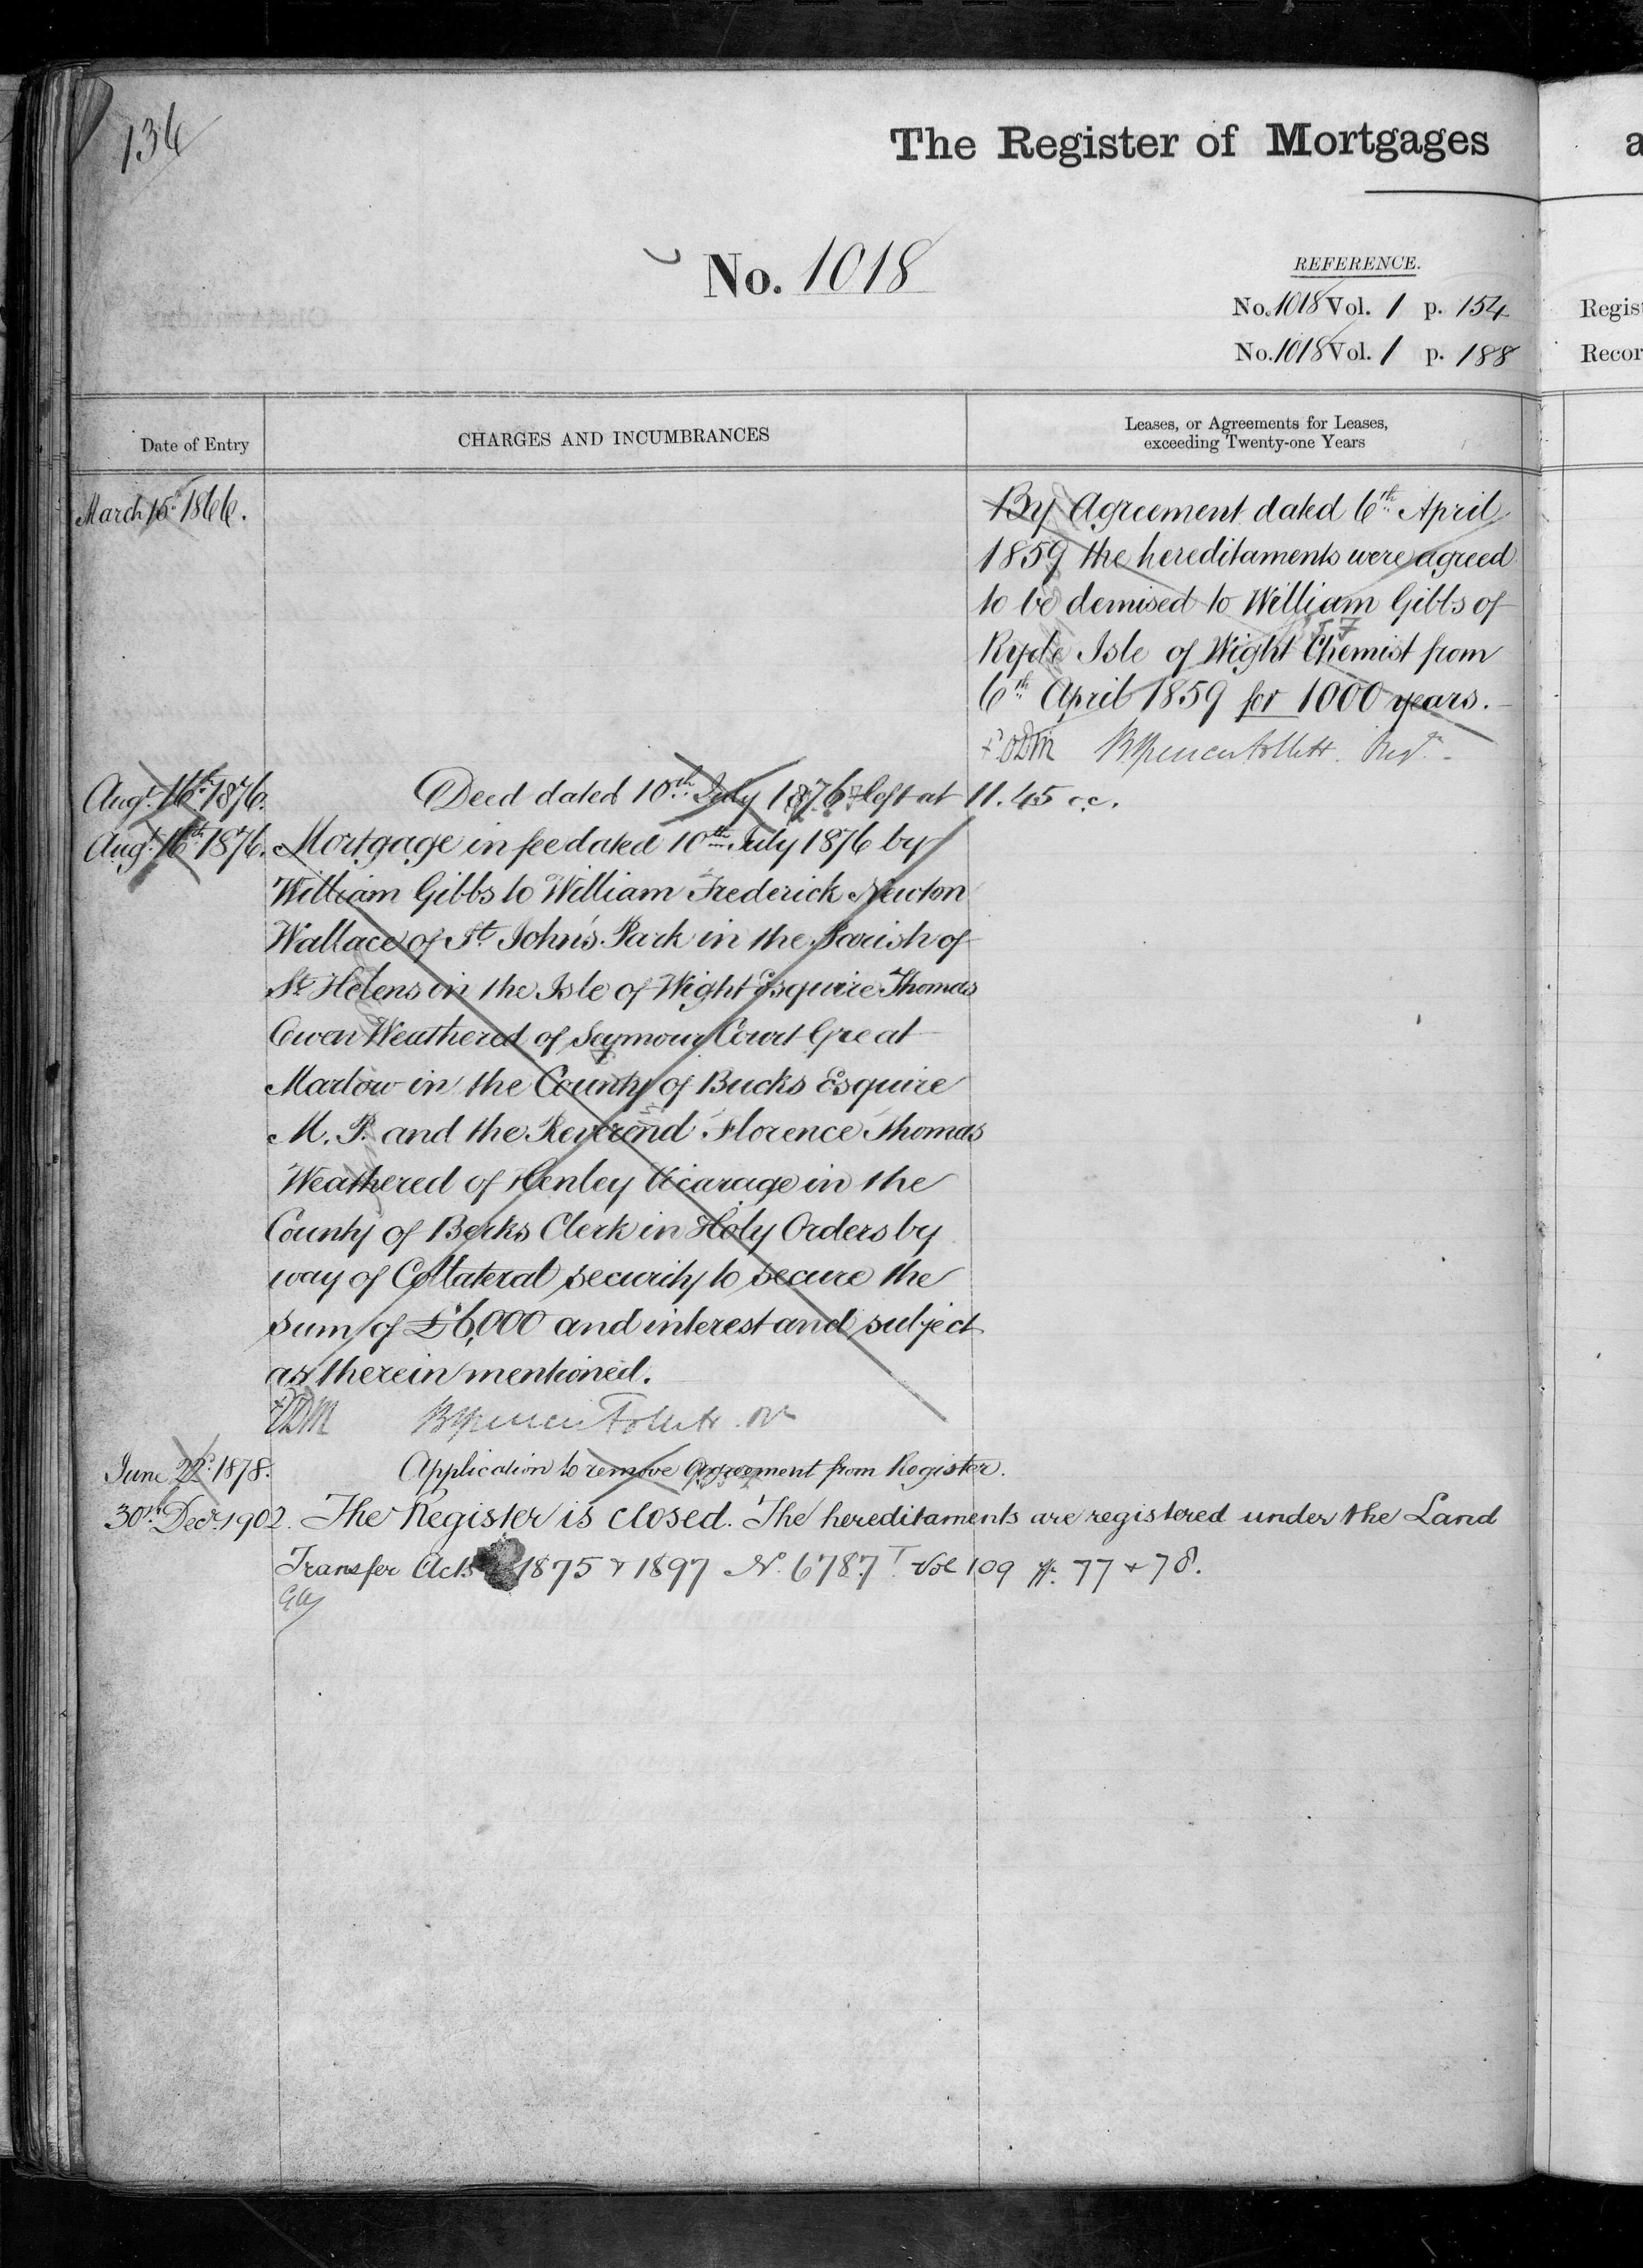 136
The Register of Mortgages
No. 1018
REFERENCE.
No. 1018 Vol. 1 p. 154
No. 1018 Vol. 1 p. 188
Regis
Recor
Date of Entry
CHARGES AND INCUMBRANCES
Leases, or Agreements for Leases,
exceeding Twenty-one Years
March 15th 1866.
By Agreement dated 6th April
1859 the hereditaments were agreed
to be demised to William Gibbs of
Ryde Isle of Wight Chemist from
6th April 1859 for 1000 years.
Augt. 16th 1876. Deed dated 10th July 1876 left at 11.45 a.
Augt. 16th 1876. Mortgage in fee dated 10th July 1876 by
William Gibbs to William Frederick Newton
Wallace of St. John's Park in the Parish of
St. Helens in the Isle of Wight Esquire Thomas
Owen Weathered of Seymour Court Great
Marlow in the County of Bucks Esquire
M. P. and the Reverend Florence Thomas
Weathered of Henley Vicarage in the
County of Berks Clerk in Holy Orders by
way of Collateral security to secure the
sum of £6,000 and interest and subject
as therein mentioned.
June 1878. Application to remove agreement from Register.
30th Decr. 1902. The Register is closed. The hereditaments are registered under the Land
Transfer Acts 1875 & 1897 No. 6787 Vol 109 pp. 77 & 78.